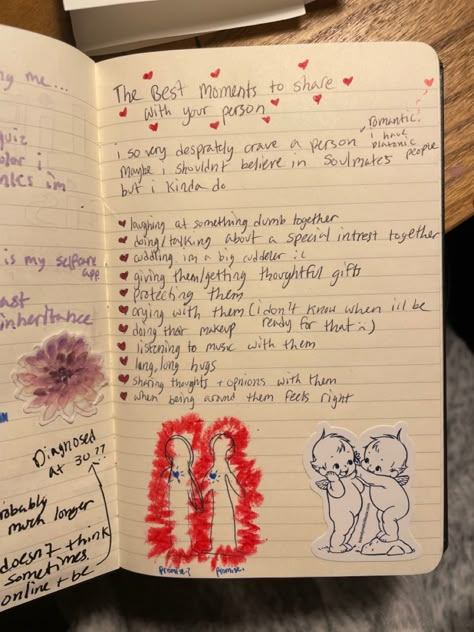 ng me...
quiz
color i
inks im
is my selfcare
app
ast
inheritance
Diagnosed
at 30??
probably
much longer
doesn't think
sometimes
online + be
The Best Moments to share
with your person
i so very despratly crave a person
romantic.
i have
platonic
people
Maybe i shouldnt believe in soulmates
but i kinda do
laughing at something dumb together
doing/talking about a special intrest together
cuddling im a big cuddeler :c
giving them/getting thoughtful gifts
protecting them
crying with them (i don't know when ill be
ready for that :c)
doing their makeup
listening to music with them
long, long hugs
sharing thoughts + opnions with them
when being around them feels right
promise?
promise.